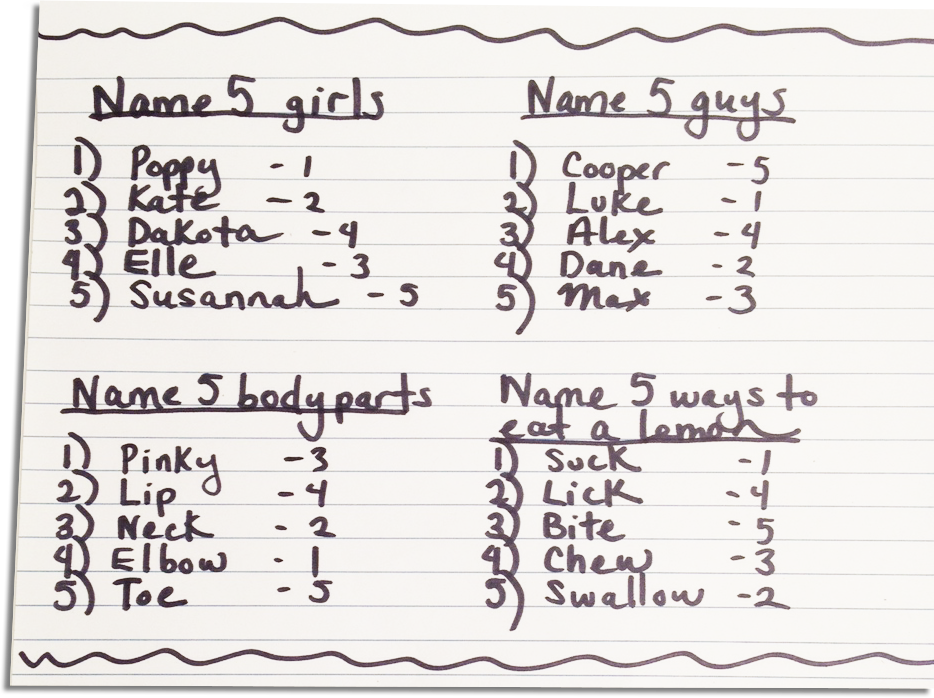 Name 5 girls
1) Poppy - 1
2) Kate - 2
3) Dakota - 4
4) Elle - 3
5) Susannah - 5
Name 5 guys
1) Cooper - 5
2) Luke - 1
3) Alex - 4
4) Dane - 2
5) Max - 3
Name 5 body parts
1) Pinky - 3
2) Lip - 4
3) Neck - 2
4) Elbow - 1
5) Toe - 5
Name 5 ways to
eat a lemon
1) Suck - 1
2) Lick - 4
3) Bite - 5
4) Chew - 3
5) Swallow - 2